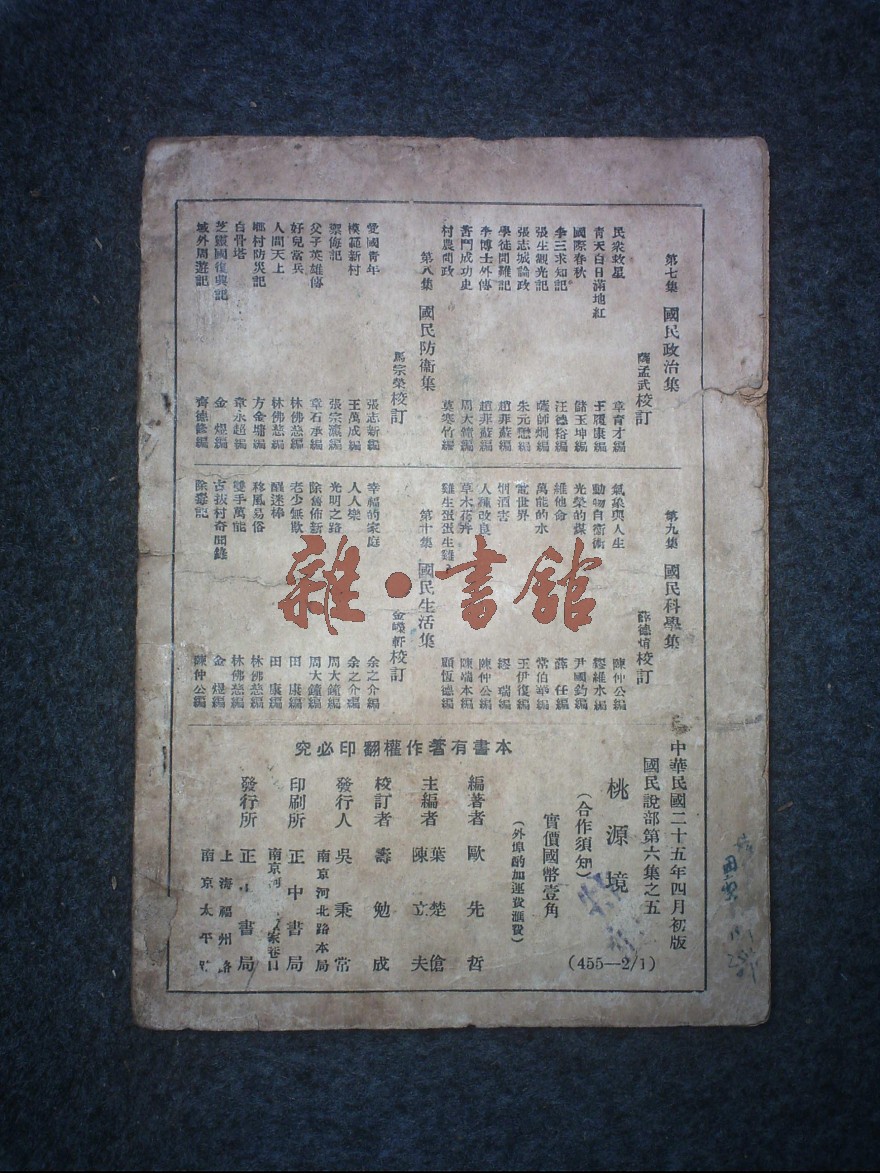 第七集 國民政治集
薩孟武校訂
民衆救星 章育才編
青天白日滿地紅 王履康編
國際春秋 儲玉坤編
李三求知記 汪德裕編
張生觀光記 薩師炯編
張志城論政 朱元懋編
學徒問難記 趙非蘇編
李博士外傳 趙非蘇編
奮鬥成功史 周大鐘編
村農問政 莫寒竹編
第八集 國民防衛集
馬宗榮校訂
愛國青年 張志新編
模範新村 王萬成編
禦侮記 張宗瀛編
父子英雄傳 章石承編
好兒當兵 林佛慈編
人間天上 林佛慈編
鄉村防災記 方金墉編
白骨塔 章永超編
芝靈國復興記 金煜編
域外周遊記 齊德修編
第九集 國民科學集
薛德焴校訂
氣象與人生 陳仲公編
動物自衞術 繆維水編
光榮的謀 尹國鈞編
維他命 薛任編
萬能的水 常伯華編
電世界 王伊復編
烟酒害 繆瑞編
人種改良 陳仲公編
草木花卉 陳瑞本編
雞生蛋蛋生雞 顧恆德編
第十集 國民生活集
金嶸軒校訂
幸福的家庭 余之介編
人人樂 余之介編
光明之路 周大鐘編
除舊佈新 周大鐘編
老少無欺 田康編
醒迷棒 田康編
移風易俗 林佛慈編
雙手萬能 林佛慈編
古拔村奇聞錄 金煜編
除毒記 陳仲公編
本書有著作權翻印必究
中華民國二十五年四月初版
國民說部第六集之五
桃源境
(合作須知)
實價國幣壹角
(外埠酌加運費滙費)
編著者 歐先哲
主編者 葉楚傖 陳立夫
校訂者 壽勉成
發行人 吳秉常
南京河北路本局
印刷所 正中書局
南京河 家巷口
發行所 正中書局
上海福州路
南京太平路
(455—2/1)
雜·書館